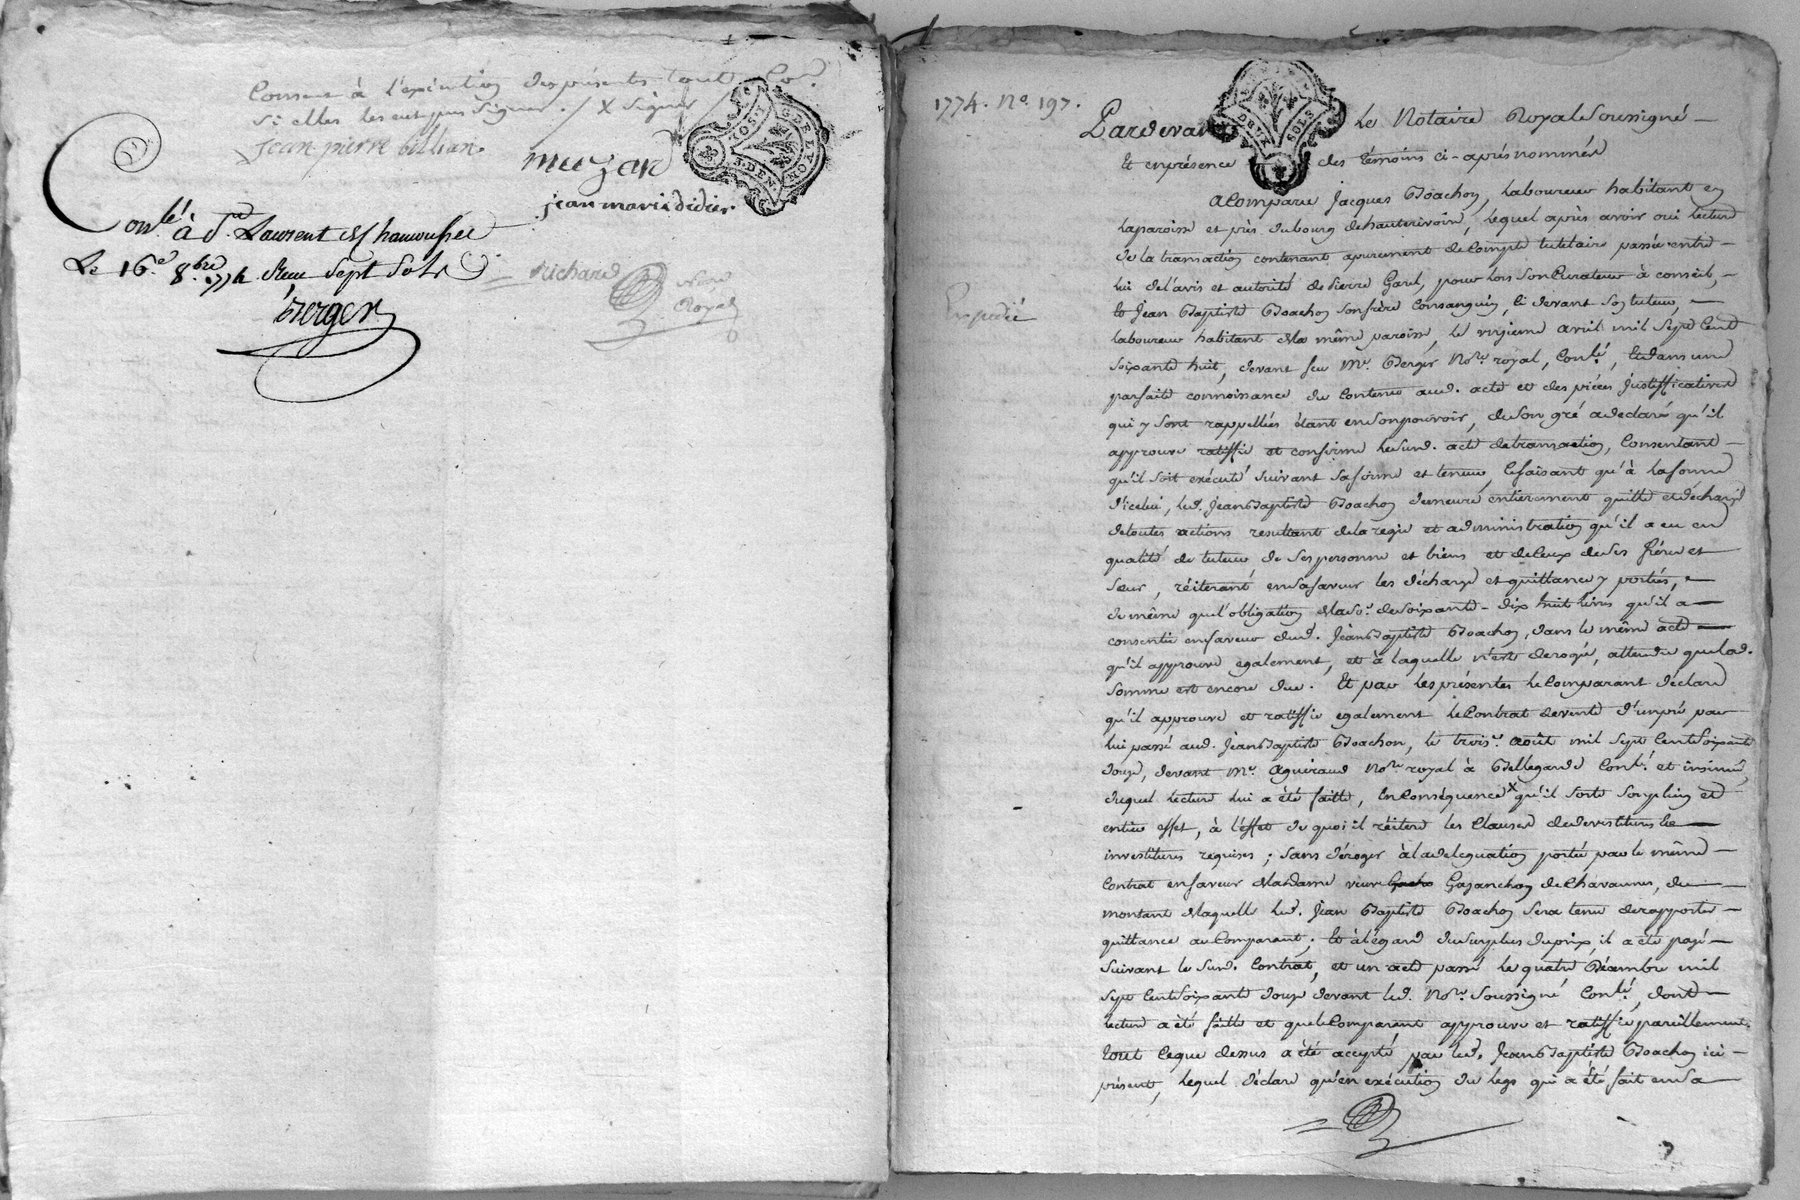 Consent à l'exécution des présents tout Co.d
si elles les eut pu signer ./ X signer /
Jean pierre billian.
muzard
jean marie didier.
Conlé. à St. Laurent Chamousset
Le 16e. 8bre. 1774 Reçu sept sols
Berger
richard Nore Royal
1774. No. 197.
Pardevant Le Notaire Royal Soussigné —
Et en présence des témoins ci-après nommés
a Comparu Jacques Boachon, Laboureur habitant en
La paroisse et près du bourg de hauterivoire, lequel après avoir oui lecture
de la transaction contenant apurement de Compte tutelaire passée entre —
lui de l'avis et autorité de pierre Garel, pour lors son Curateur à conseil, —
Et Jean Baptiste Boachon son frère Consanguin, Ci devant son tuteur, —
Expedié
laboureur habitant de la même paroisse, le vingieme avril mil sept Cent
soixante huit, devant feu Me. Berger Nore. royal, Conlé., Etdans une
parfaite connoissance du Contenu aud. acte et des pièces justifficatives
qui y sont rappellées étant en son pouvoir, de son gré a declaré qu'il
approuve ratiffie et confirme le sud. acte de transaction, Consentant —
qu'il soit exécuté suivant sa forme et teneur, Ce faisant qu'à la forme
d'icelui, led. Jean Baptiste Boachon demeure entierement quitte et déchargé
de toutes actions resultant de la regie et administration qu'il a eu en
qualité de tuteur, de ses personne et biens et de Ceux de ses frère et
sœur, réiterant en sa faveur les décharge et quittance y portées, —
de même que l'obligation de la so. de soixante-dix huit livres qu'il a —
consentie en faveur dud. Jean Baptiste Boachon, dans le même acte —
qu'il approuve egalement, et à laquelle n'est derogé, attendu que lad.
somme est encore due. Et par les présentes le Comparant déclare
qu'il approuve et ratiffie egalement le Contrat de vente d'un pré par
lui passé aud. Jean Baptiste Boachon, le trois. août mil sept Cent soixante
douze, devant Me. Aguiraud Nore. royal à Bellegarde Conlé. et insinué,
duquel lecture lui a été faitte, En Conséquence X qu'il sorte son plein et
entier effet, à l'effet de quoi il réitere les Clauses de devestitures Ce —
investitures requises ; sans déroger à la deleguation portée par le même —
Contrat en faveur de la dame veuve Gajanchon de Chavannes, du —
montant de laquelle led. Jean Baptiste Boachon sera tenu de rapporter —
quittance au Comparant ; Et à l'égard du surplus du prix, il a été payé —
suivant le sud. Contrat, et un acte passé le quatre Décembre mil
sept Cent soixante douze devant led. Nore. soussigné Conlé, dont —
lecture a été faitte et que le Comparant approuve et ratiffie pareillement.
tout Ce que dessus a été accepté par led. Jean Baptiste Boachon ici —
présent, lequel déclare qu'en exécution du legs qui a été fait en sa —